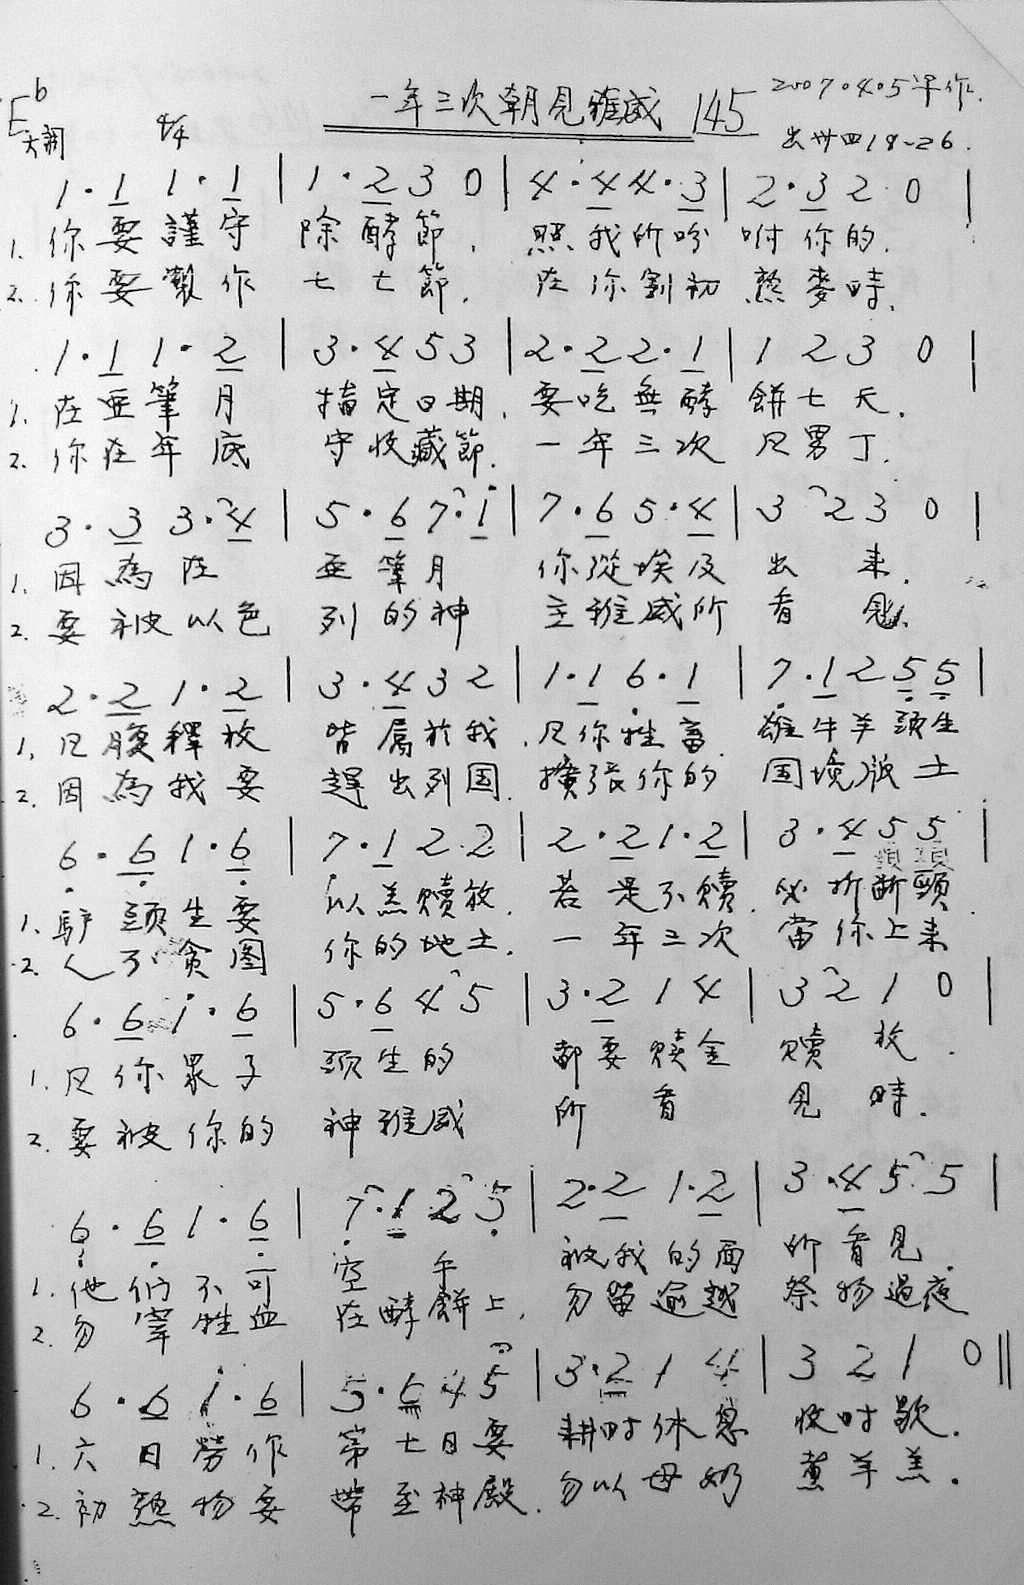 一年三次朝見雅威 145 2007.4.5.
E♭大調 4/4 出卅四18-26.
1·1 1·1 | 1·2 3 0 | 4·4 4·3 | 2·3 2 0 |
1. 你要謹守 除酵節, 照我所吩 咐你的.
2. 你要製作 七七節, 在你割初 熟麥時.
1·1 1·2 | 3·4 5 3 | 2·2 2·1 | 1 2 3 0 |
1. 在亜筆月 指定日期, 要吃無酵 餅七天.
2. 你在年底 守收藏節. 一年三次 凡男丁.
3·3 3·4 | 5·6 7·1 | 7·6 5·4 | 3 2 3 0 |
1. 因為在 亜筆月 你從埃及 出來.
2. 要被以色 列的神 主雅威所 看見.
2·2 1·2 | 3·4 3 2 | 1·1 6·1 | 7·1 2 5 5 |
1. 凡腹釋放 皆屬於我, 凡你牲畜 雄牛羊頭生
2. 因為我要 趕出列国, 擴張你的 国境版土
6·6 1·6 | 7·1 2 2 | 2·2 1·2 | 3·4 5 5 |
1. 驴頭生要 以羔赎放, 若是不赎, 必折断頸.
2. 人不貪图 你的地土. 一年三次 當你上来
6·6 1·6 | 5·6 4 5 | 3·2 1 4 | 3 2 1 0 |
1. 凡你眾子 頭生的 都要赎金 赎放.
2. 要被你的 神雅威 所看 見時.
6·6 1·6 | 7·1 2 5 | 2·2 1·2 | 3·4 5 5 |
1. 他们不可 空手 被我的面 所看見.
2. 勿宰牲血 在酵餅上, 勿留逾越 祭物過夜
6·6 1·6 | 5·6 4 5 | 3·2 1 4 | 3 2 1 0 ‖
1. 六日勞作 第七日要 耕时休息 收时歇.
2. 初熟物要 帶至神殿. 勿以母奶 煮羊羔.